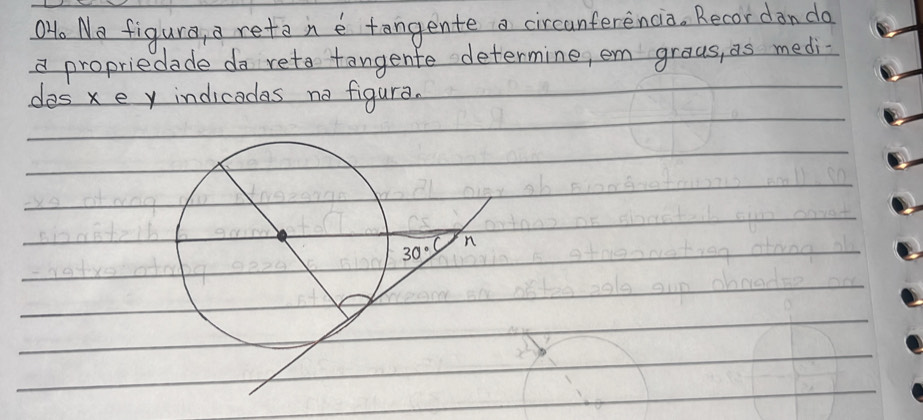 04. Na figura, a reta n é tangente a circunferência. Recordando
a propriedade da reta tangente determine, em graus, as medi-
das x e y indicadas na figura.
30° n